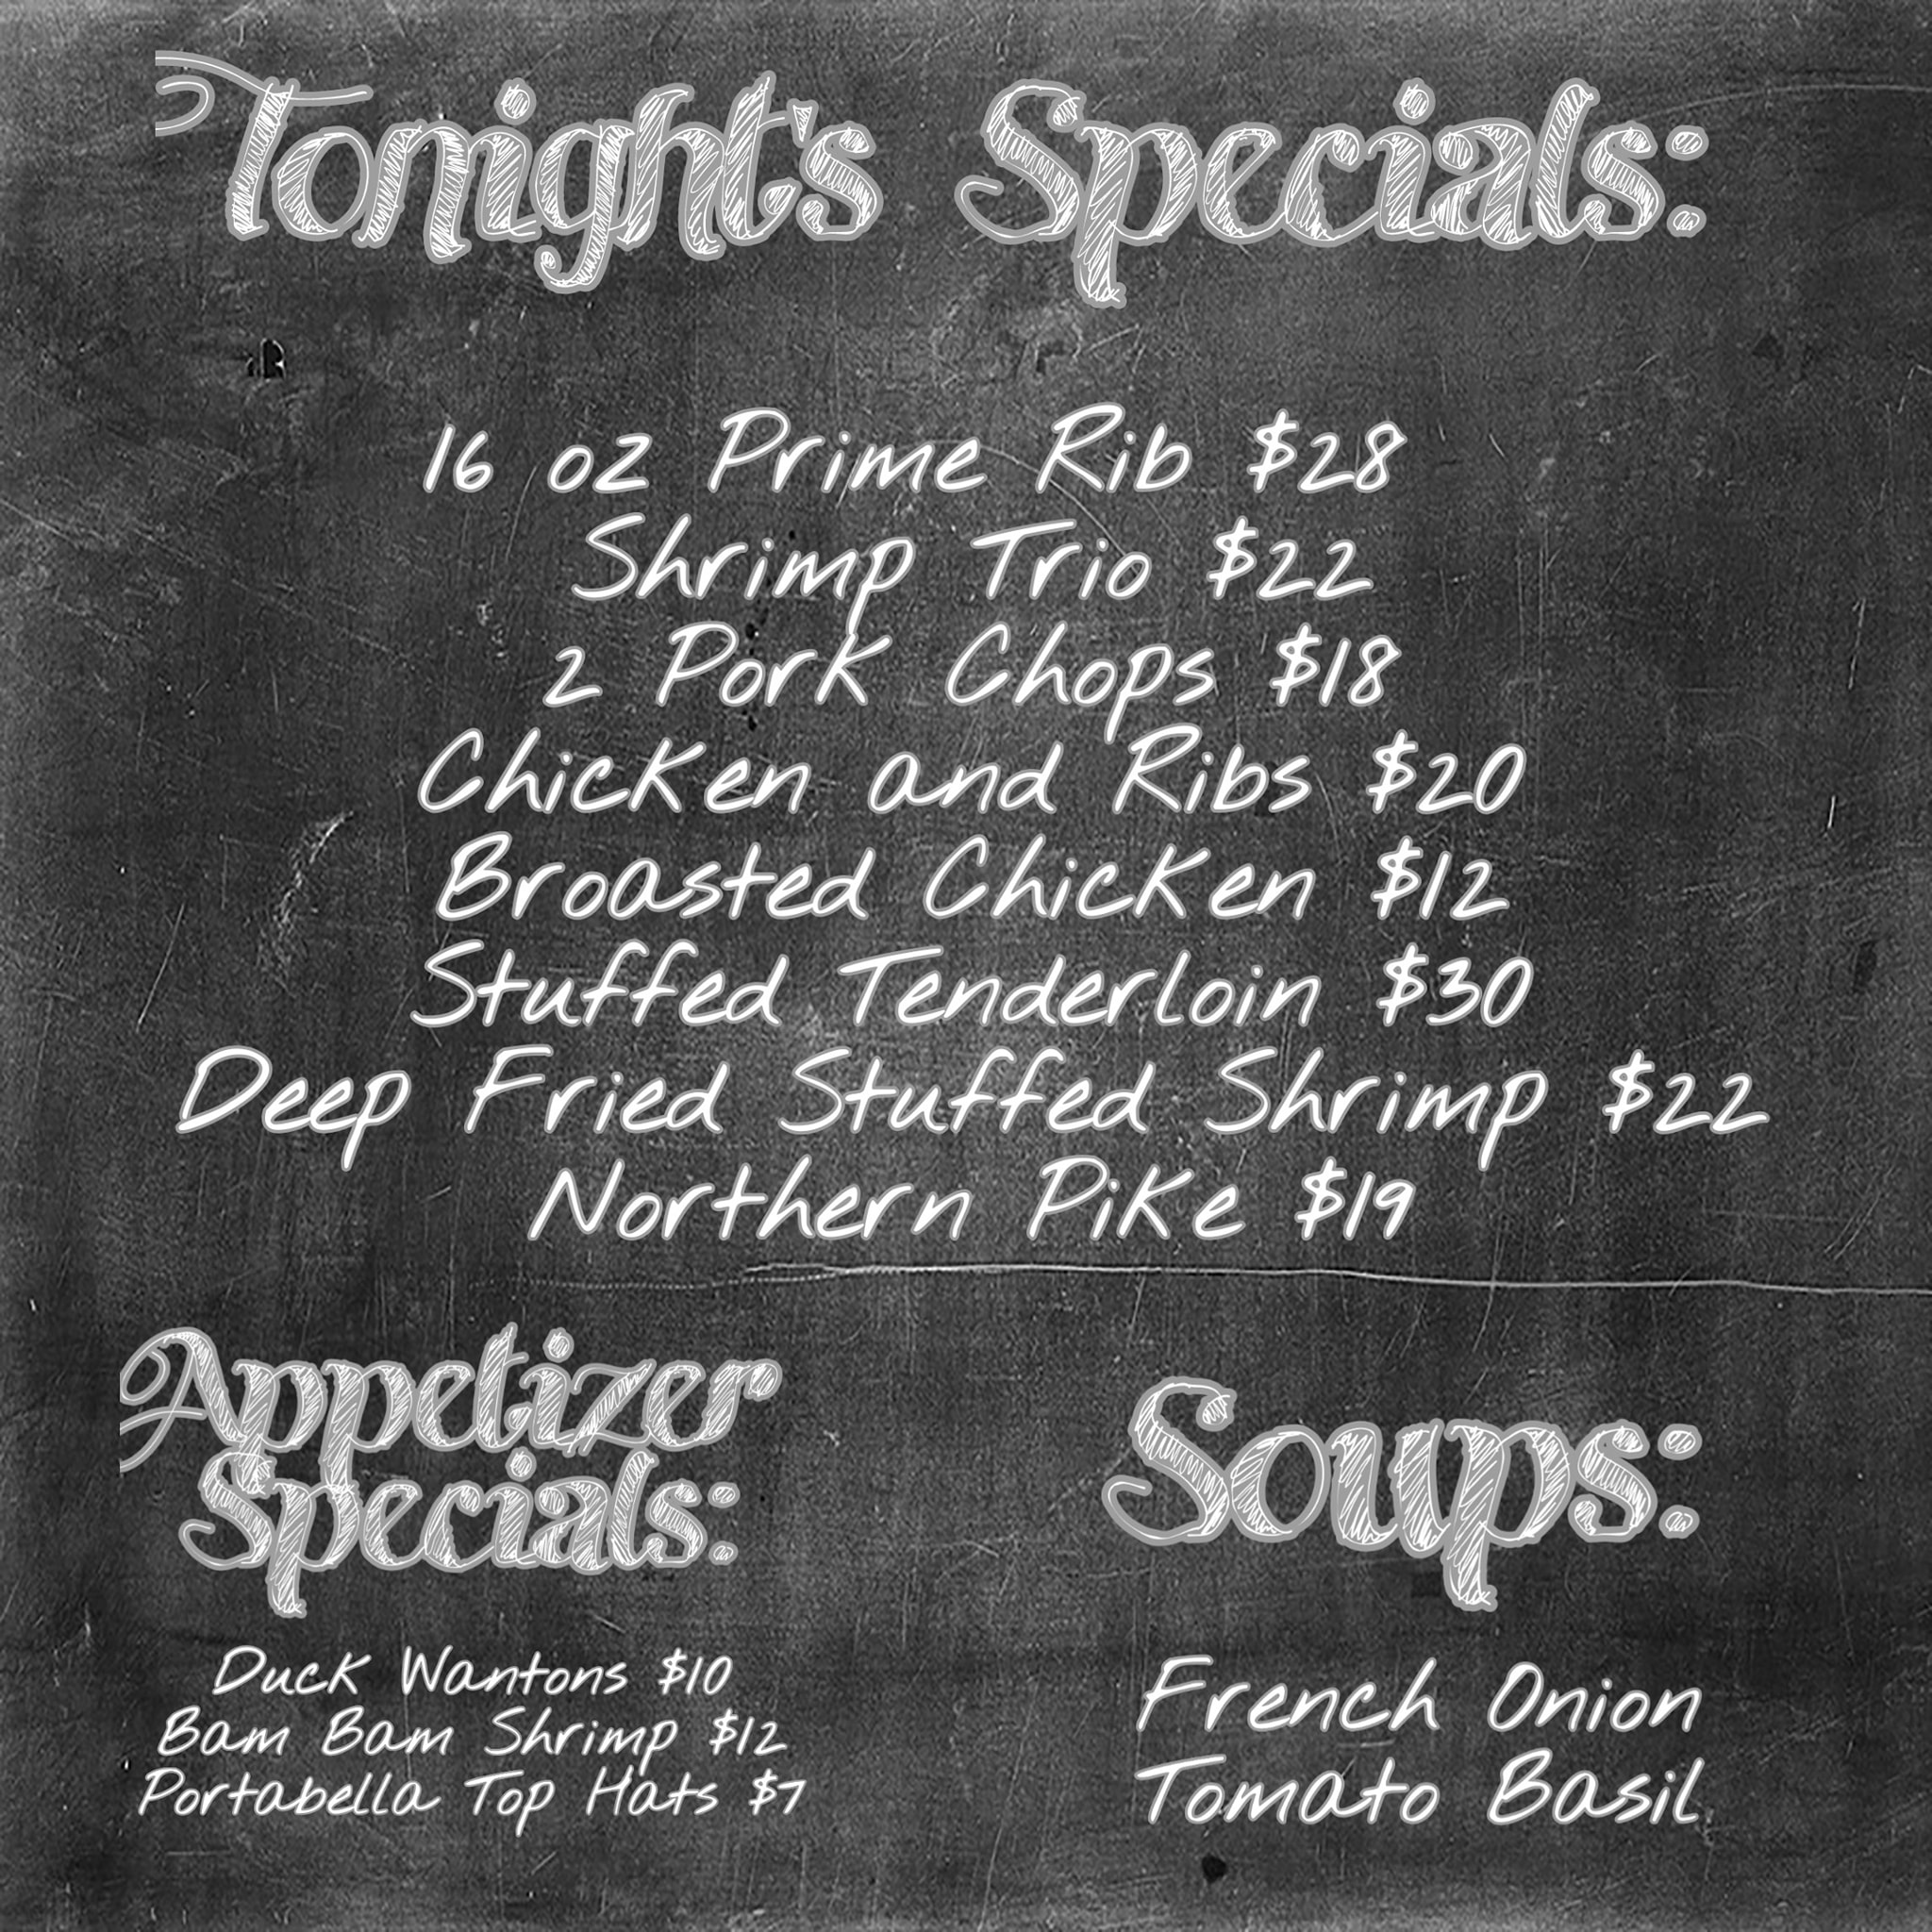 Tonight's Specials:
16 oz Prime Rib $28
Shrimp Trio $22
2 Pork Chops $18
Chicken and Ribs $20
Broasted Chicken $12
Stuffed Tenderloin $30
Deep Fried Stuffed Shrimp $22
Northern Pike $19
Appetizer
Specials:
Duck Wantons $10
Bam Bam Shrimp $12
Portabella Top Hats $7
Soups:
French Onion
Tomato Basil